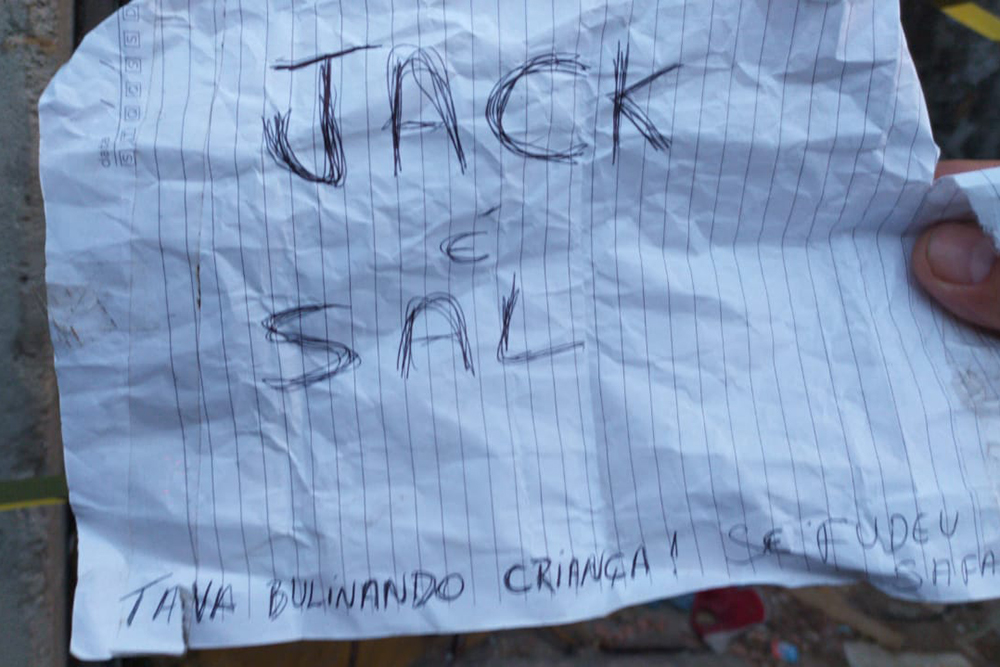 JACK
É
SAL
TAVA BULINANDO CRIANÇA! SE FUDEU
SAFA
data / /
S T Q Q S S D